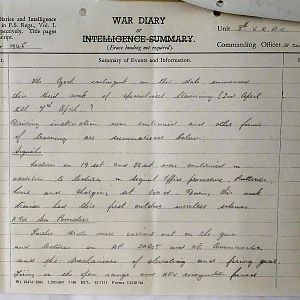 WAR DIARY
or
INTELLIGENCE SUMMARY.
(Erase heading not required).
Unit 8th K.R.R.C.
Commanding Officer
1945
Summary of Events and Information.
The Czech contingent on this date commenced
this third week of specialised training (2nd April
till 7th April)
Driving instruction was continued and other forms
of training are summarised below.
Signals
Lectures on 19 set and 38 set were continued in
addition to lectures on Signal Office procedure, Batteries
and charging set. During this week
trainees had their first outdoor wireless scheme.
Further drills were carried out on the gun
and lectures on AP SABOT and HE Ammunition
and the mechanisms of elevating and firing gear
Firing on the open range and AFV recognition